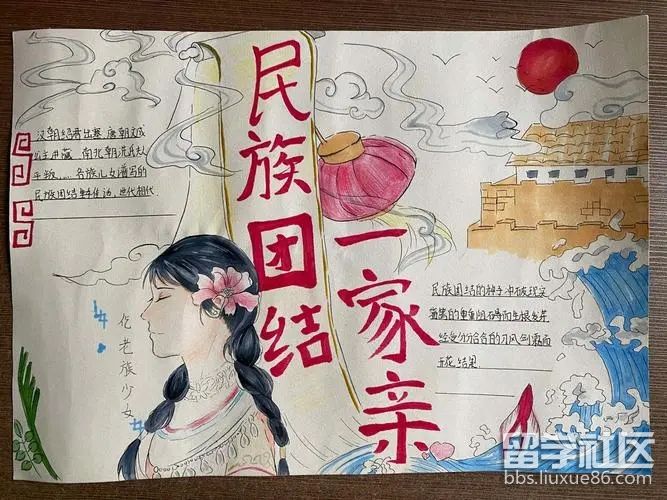 民族团结
一家亲
汉朝昭君出塞 唐朝文成
公主进藏 南北朝冼夫人
平叛,....各族儿女谱写的
民族团结 佳话,世代相代
仡老族少女
民族团结的种子冲破现实
重重阻碍而生根发芽
经受分分合合的刀风剑霜而
开花 结果
留学社区
bbs.liuxue86.com